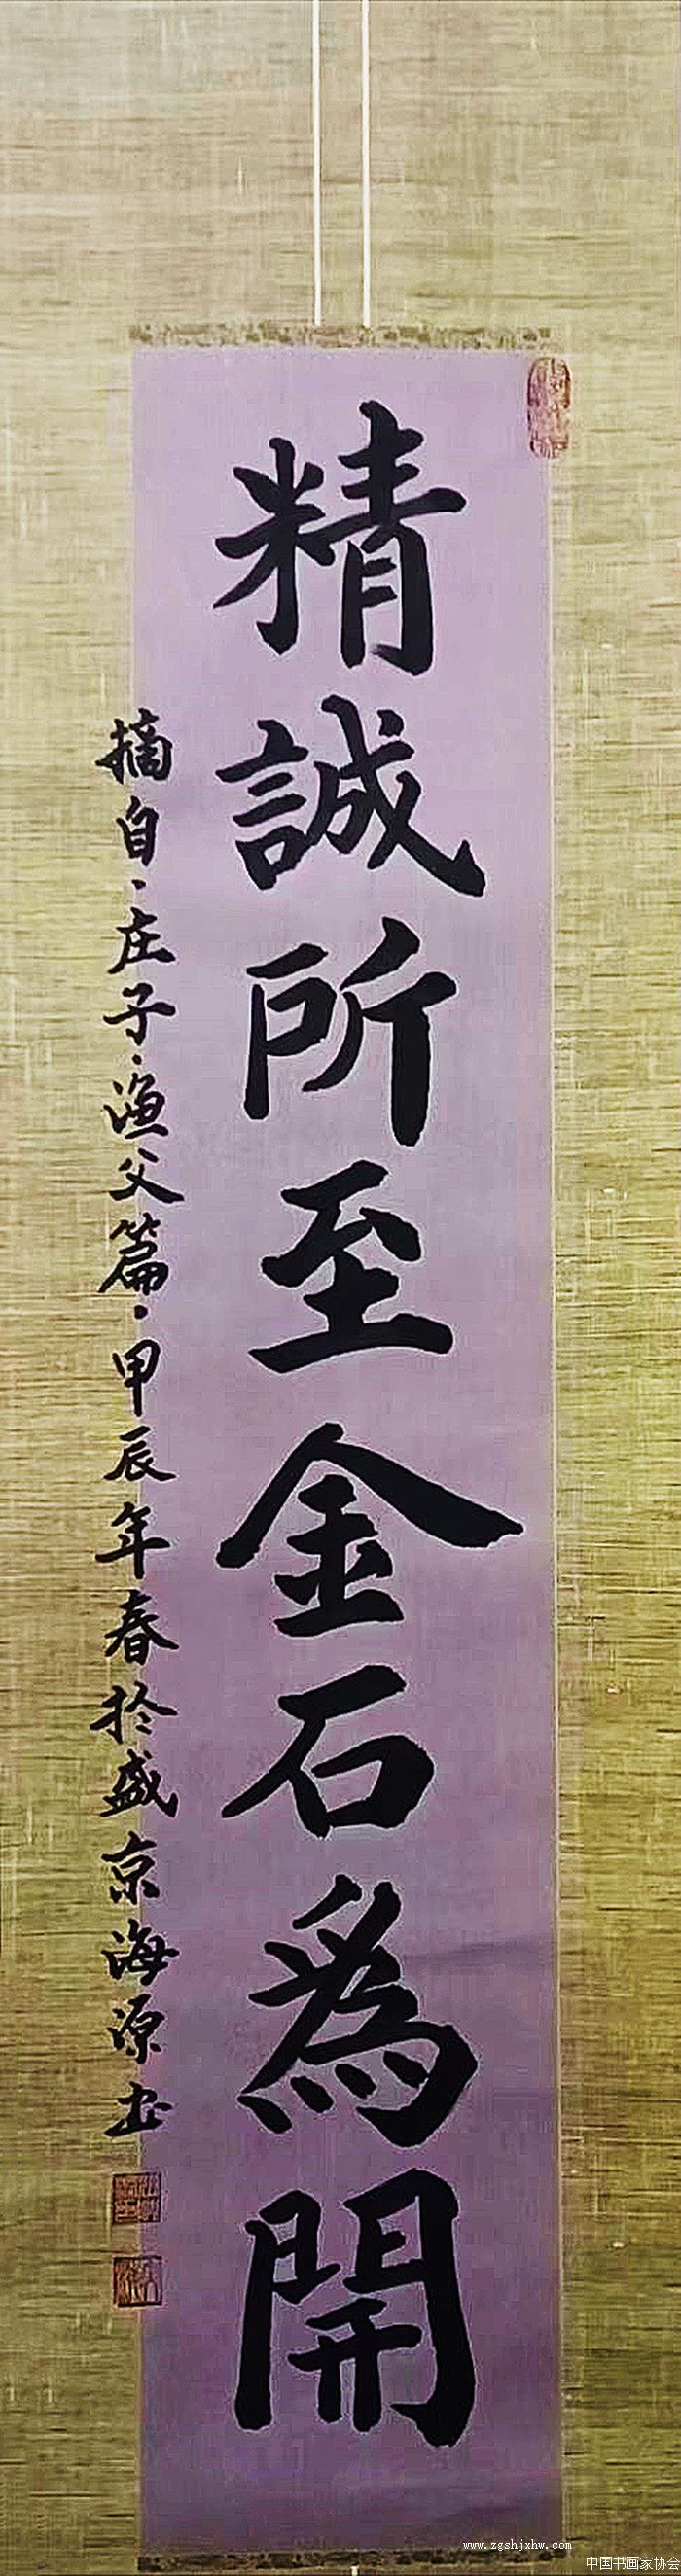 精誠所至金石為開
摘自·庄子·漁父篇·甲辰年春於盛京海源书
www.zgshjxhw.com
中国书画家协会